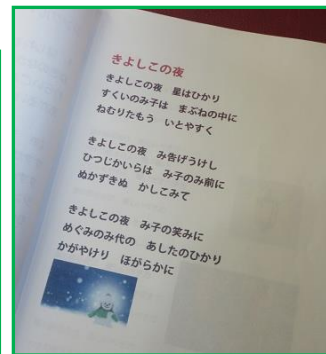 きよしこの夜
きよしこの夜　星はひかり
すくいのみ子は　まぶねの中に
ねむりたもう　いとやすく
きよしこの夜　み告げうけし
ひつじかいらは　み子のみ前に
ぬかずきぬ　かしこみて
きよしこの夜　み子の笑みに
めぐみのみ代の　あしたのひかり
かがやけり　ほがらかに